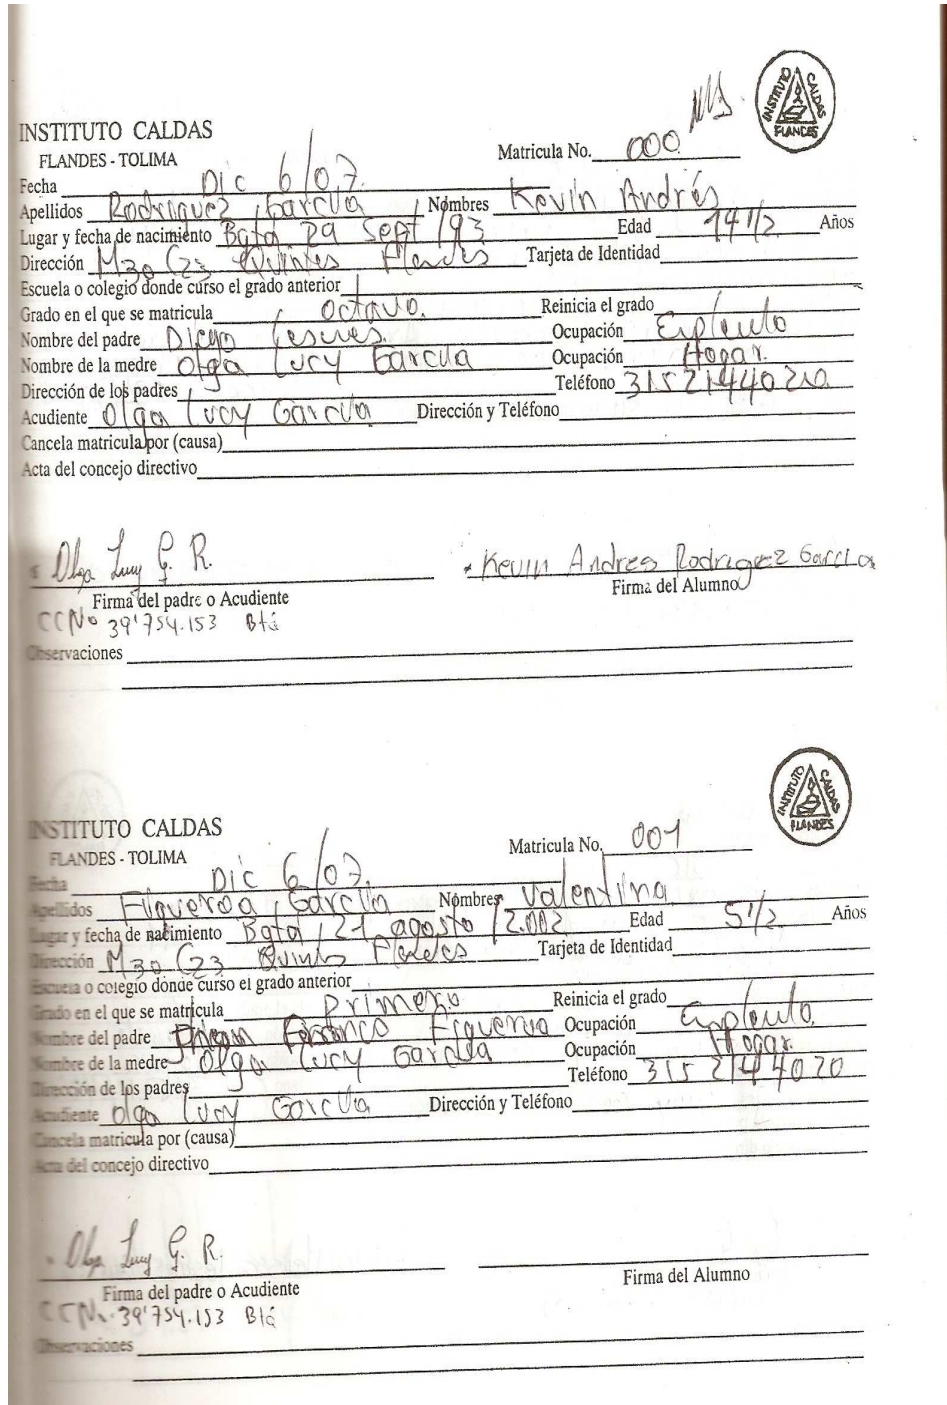 INSTITUTO CALDAS
FLANDES - TOLIMA
INSTITUTO CALDAS FLANDES
Matricula No. 000
Fecha Dic 6/07.
Apellidos Rodriguez García Nombres Kevin Andrés
Lugar y fecha de nacimiento Bgta 29 Sept/93 Edad 14 1/2 Años
Dirección M30 C23 Quintas Flandes Tarjeta de Identidad
Escuela o colegio donde curso el grado anterior
Grado en el que se matricula Octavo. Reinicia el grado
Nombre del padre Diego Ocupación
Nombre de la medre Olga Lucy García Ocupación Hogar.
Dirección de los padres Teléfono
Acudiente Olga Lucy García Dirección y Teléfono
Cancela matricula por (causa)
Acta del concejo directivo
Olga Lucy G. R. Kevin Andres Rodriguez Garcia
Firma del padre o Acudiente Firma del Alumno
CC No 39'754.153 Btá
Observaciones
INSTITUTO CALDAS
FLANDES - TOLIMA
INSTITUTO CALDAS FLANDES
Matricula No. 001
Fecha Dic 6/07.
Apellidos Figueroa García Nombres Valentina
Lugar y fecha de nacimiento Bgta 21 agosto/2.002 Edad 5 1/2 Años
Dirección M30 C23 Quintas Flandes Tarjeta de Identidad
Escuela o colegio donde curso el grado anterior
Grado en el que se matricula Primero Reinicia el grado
Nombre del padre Figueroa Ocupación
Nombre de la medre Olga Lucy García Ocupación Hogar.
Dirección de los padres Teléfono 315 2144020
Acudiente Olga Lucy García Dirección y Teléfono
Cancela matricula por (causa)
Acta del concejo directivo
Olga Lucy G. R.
Firma del padre o Acudiente Firma del Alumno
CC No. 39'754.153 Btá
Observaciones